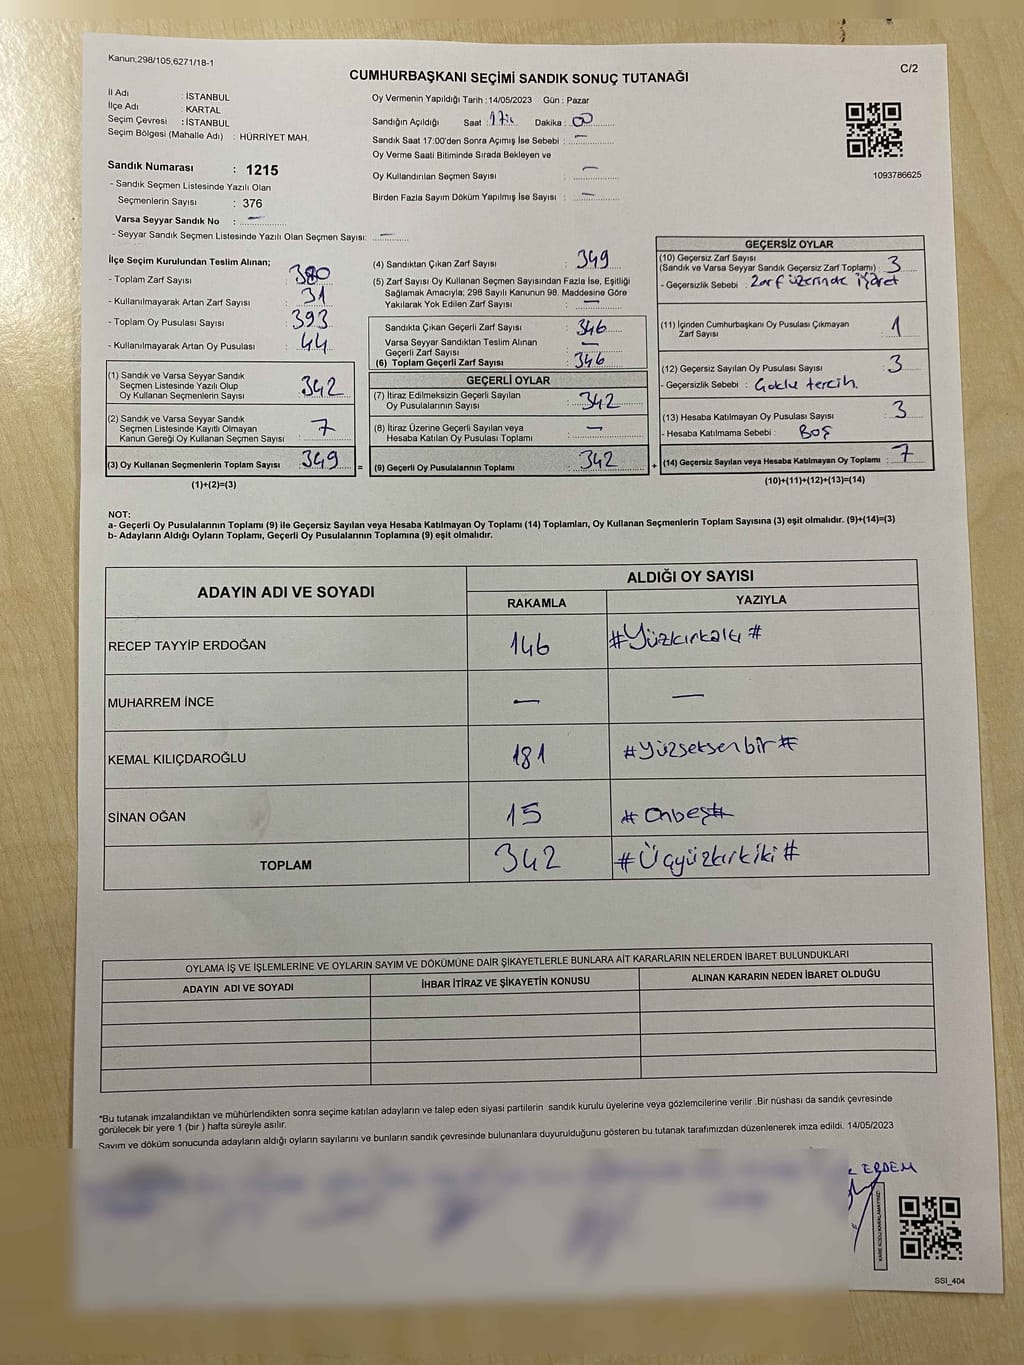 Kanun;298/105,6271/18-1
C/2
CUMHURBAŞKANI SEÇİMİ SANDIK SONUÇ TUTANAĞI
İl Adı : İSTANBUL
İlçe Adı : KARTAL
Seçim Çevresi : İSTANBUL
Seçim Bölgesi (Mahalle Adı) : HÜRRİYET MAH.
Sandık Numarası : 1215
- Sandık Seçmen Listesinde Yazılı Olan
Seçmenlerin Sayısı : 376
Varsa Seyyar Sandık No : —
- Seyyar Sandık Seçmen Listesinde Yazılı Olan Seçmen Sayısı: —
Oy Vermenin Yapıldığı Tarih : 14/05/2023 Gün : Pazar
Sandığın Açıldığı Saat : Dakika : 00
Sandık Saat 17:00'den Sonra Açımış İse Sebebi : —
Oy Verme Saati Bitiminde Sırada Bekleyen ve
Oy Kullandırılan Seçmen Sayısı —
Birden Fazla Sayım Döküm Yapılmış İse Sayısı : —
1093786625
İlçe Seçim Kurulundan Teslim Alınan;
- Toplam Zarf Sayısı : 380
- Kullanılmayarak Artan Zarf Sayısı : 31
- Toplam Oy Pusulası Sayısı : 393
- Kullanılmayarak Artan Oy Pusulası : 44
(1) Sandık ve Varsa Seyyar Sandık
Seçmen Listesinde Yazılı Olup
Oy Kullanan Seçmenlerin Sayısı : 342
(2) Sandık ve Varsa Seyyar Sandık
Seçmen Listesinde Kayıtlı Olmayan
Kanun Gereği Oy Kullanan Seçmen Sayısı : 7
(3) Oy Kullanan Seçmenlerin Toplam Sayısı : 349 =
(1)+(2)=(3)
(4) Sandıktan Çıkan Zarf Sayısı : 349
(5) Zarf Sayısı Oy Kullanan Seçmen Sayısından Fazla İse, Eşitliği
Sağlamak Amacıyla, 298 Sayılı Kanunun 98. Maddesine Göre
Yakılarak Yok Edilen Zarf Sayısı : —
Sandıkta Çıkan Geçerli Zarf Sayısı : 346
Varsa Seyyar Sandıktan Teslim Alınan
Geçerli Zarf Sayısı : —
(6) Toplam Geçerli Zarf Sayısı : 346
GEÇERLİ OYLAR
(7) İtiraz Edilmeksizin Geçerli Sayılan
Oy Pusulalarının Sayısı : 342
(8) İtiraz Üzerine Geçerli Sayılan veya
Hesaba Katılan Oy Pusulası Toplamı : —
(9) Geçerli Oy Pusulalarının Toplamı : 342 +
GEÇERSİZ OYLAR
(10) Geçersiz Zarf Sayısı
(Sandık ve Varsa Seyyar Sandık Geçersiz Zarf Toplamı) : 3
- Geçersizlik Sebebi : Zarf üzerinde işaret
(11) İçinden Cumhurbaşkanı Oy Pusulası Çıkmayan
Zarf Sayısı : 1
(12) Geçersiz Sayılan Oy Pusulası Sayısı : 3
- Geçersizlik Sebebi : Çoklu tercih.
(13) Hesaba Katılmayan Oy Pusulası Sayısı : 3
- Hesaba Katılmama Sebebi : Boş
(14) Geçersiz Sayılan veya Hesaba Katılmayan Oy Toplamı : 7
(10)+(11)+(12)+(13)=(14)
NOT:
a- Geçerli Oy Pusulalarının Toplamı (9) ile Geçersiz Sayılan veya Hesaba Katılmayan Oy Toplamı (14) Toplamları, Oy Kullanan Seçmenlerin Toplam Sayısına (3) eşit olmalıdır. (9)+(14)=(3)
b- Adayların Aldığı Oyların Toplamı, Geçerli Oy Pusulalarının Toplamına (9) eşit olmalıdır.
ADAYIN ADI VE SOYADI
ALDIĞI OY SAYISI
RAKAMLA YAZIYLA
RECEP TAYYİP ERDOĞAN 146 #Yüzkırkaltı#
MUHARREM İNCE — —
KEMAL KILIÇDAROĞLU 181 #Yüzseksenbir#
SİNAN OĞAN 15 #Onbeş#
TOPLAM 342 #Üçyüzkırkiki#
OYLAMA İŞ VE İŞLEMLERİNE VE OYLARIN SAYIM VE DÖKÜMÜNE DAİR ŞİKAYETLERLE BUNLARA AİT KARARLARIN NELERDEN İBARET BULUNDUKLARI
ADAYIN ADI VE SOYADI İHBAR İTİRAZ VE ŞİKAYETİN KONUSU ALINAN KARARIN NEDEN İBARET OLDUĞU
*Bu tutanak imzalandıktan ve mühürlendikten sonra seçime katılan adayların ve talep eden siyasi partilerin sandık kurulu üyelerine veya gözlemcilerine verilir .Bir nüshası da sandık çevresinde
görülecek bir yere 1 (bir ) hafta süreyle asılır.
Sayım ve döküm sonucunda adayların aldığı oyların sayılarını ve bunların sandık çevresinde bulunanlara duyurulduğunu gösteren bu tutanak tarafımızdan düzenlenerek imza edildi. 14/05/2023
ERDEM
KARE KODU KARALAMAYINIZ!
SSI_404